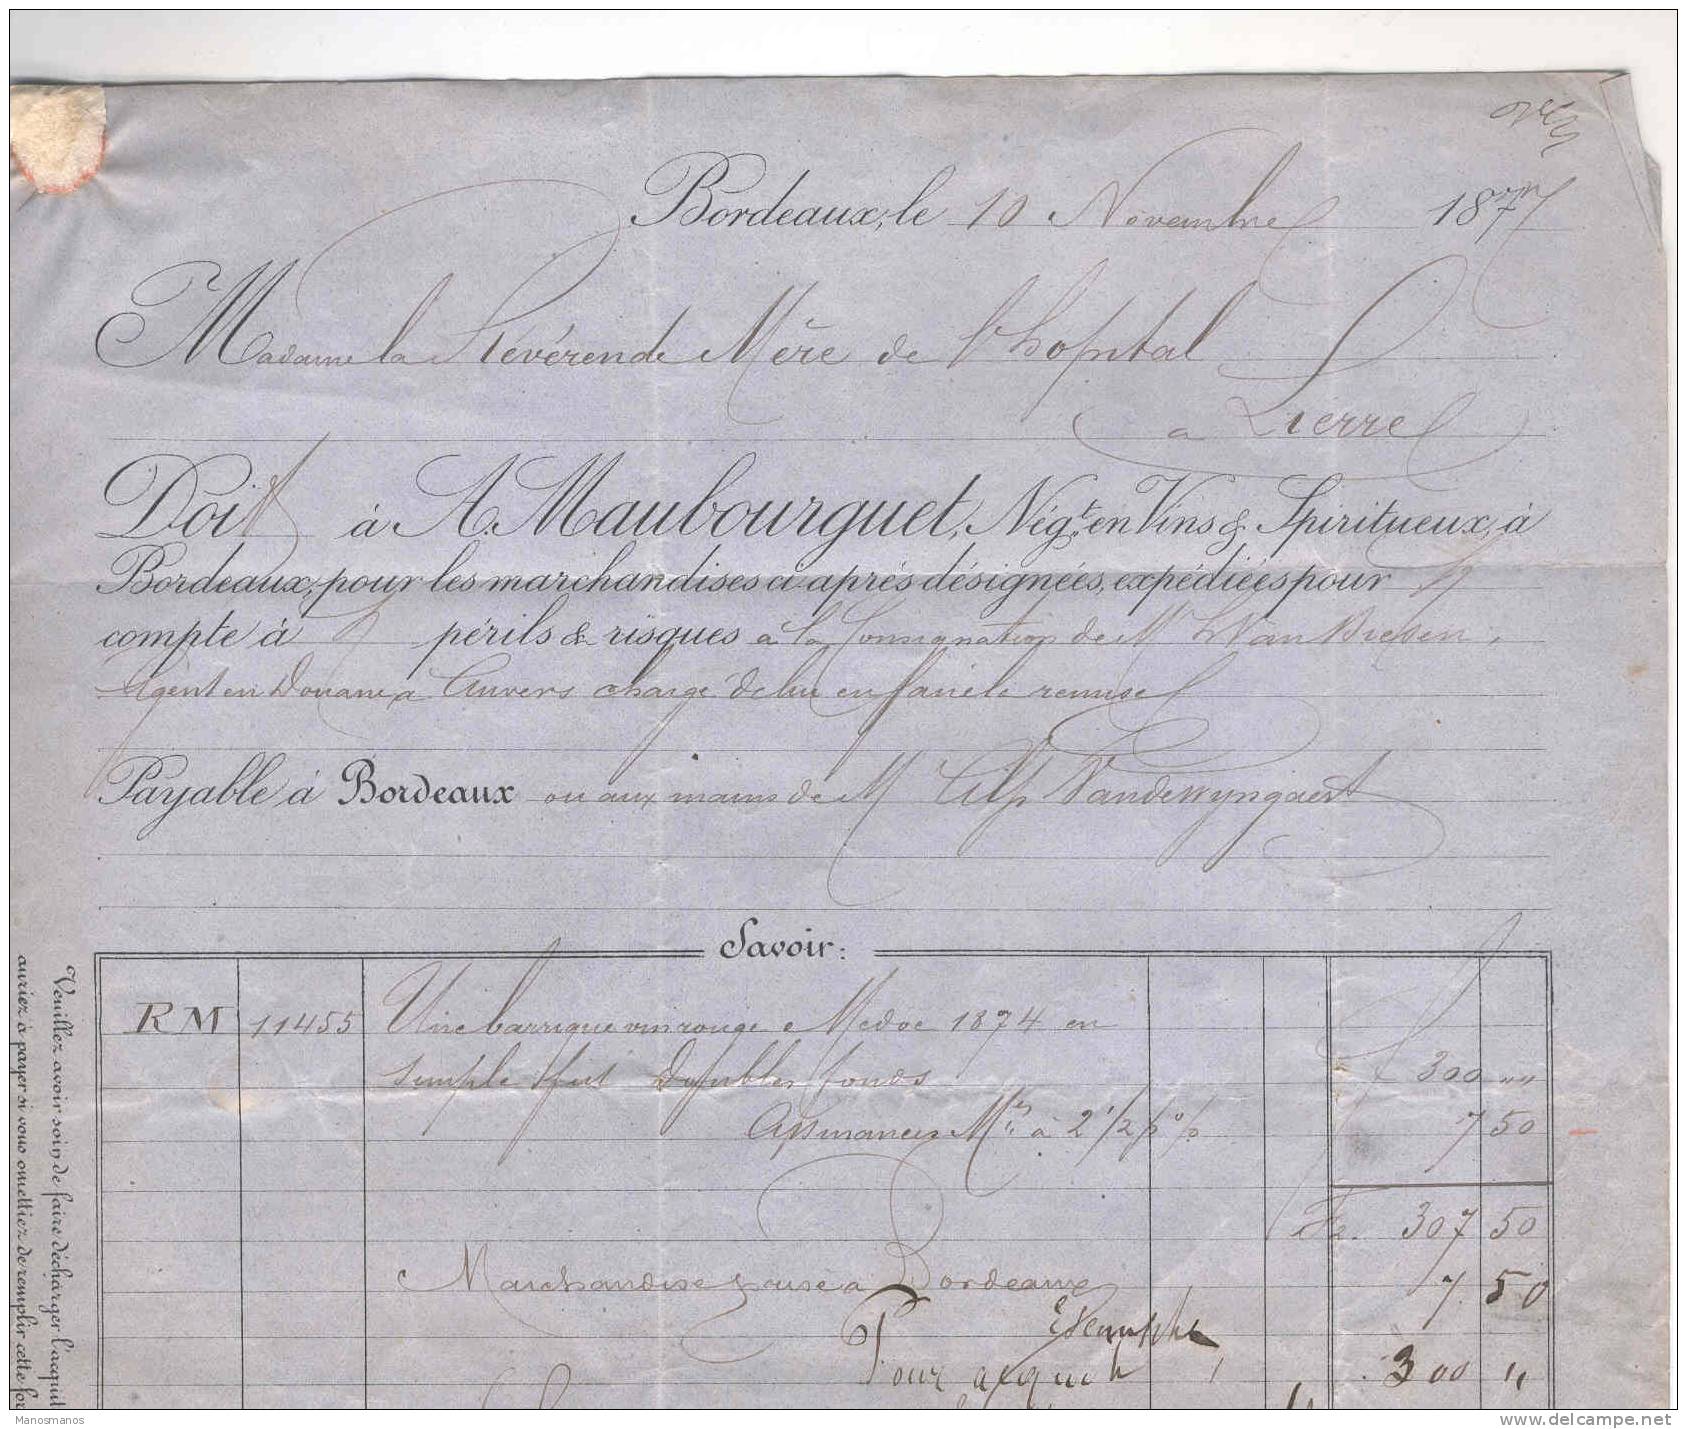 Bordeaux, le 10 Novembre 1877
Madame la Révérende Mère de l'hopital
a Lierre
Doit à A. Maubourguet, Nég.t en Vins & Spiritueux, à
Bordeaux, pour les marchandises ci après désignées, expédiées pour
compte à périls & risques a la Consignation de Mr
Agent en Douane a Anvers chargé de lui en faire la remise
Payable à Bordeaux ou aux mains de M Alph Vandewyngaert
Savoir:
RM 11455 Une barrique vin rouge Medoc 1874 en
simple fut Doubles fonds 300 ""
Assurances Mes à 2 1/2 p % 7 50
Frs. 307 50
Marchandise prise a Bordeaux 7. 50
Escompte
Pour acquit 300 "
Veuillez avoir soin de faire décharger l'acquit
auriez à payer si vous omettiez de remplir cette for
Manosmanos
www.delcampe.net